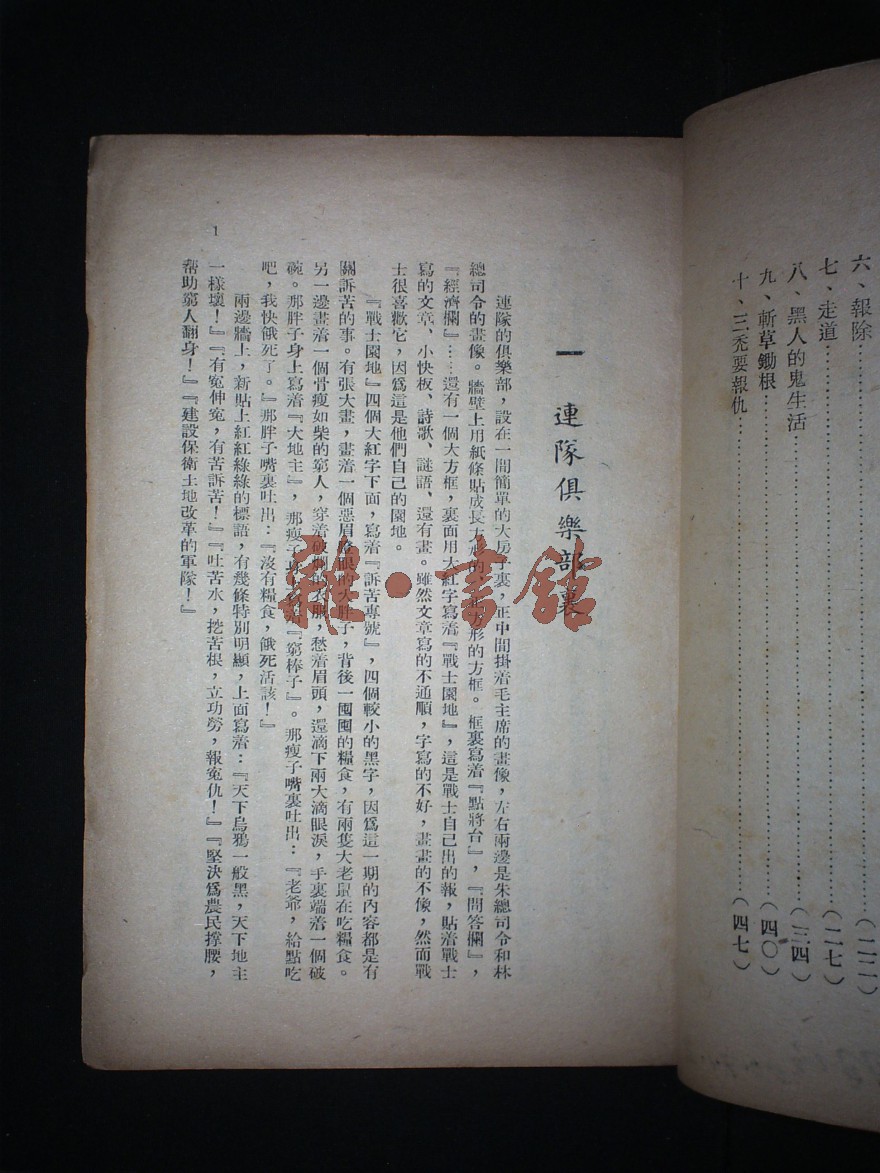 六、報除………………(二二)
七、走道………………(二七)
八、黑人的鬼生活………………(三四)
九、斬草鋤根………………(四〇)
十、三禿要報仇………………(四七)
一 連隊俱樂部裏
連隊的俱樂部，設在一間簡單的大房子裏，正中間掛着毛主席的畫像，左右兩邊是朱總司令和林
總司令的畫像。牆壁上用紙條貼成長方形的、正方形的方框。框裏寫着『點將台』，『問答欄』，
『經濟欄』……還有一個大方框，裏面用大紅字寫着『戰士園地』，這是戰士自己出的報，貼着戰士
寫的文章、小快板、詩歌、謎語、還有畫。雖然文章寫的不通順，字寫的不好，畫畫的不像，然而戰
士很喜歡它，因爲這是他們自己的園地。
『戰士園地』四個大紅字下面，寫着『訴苦專號』，四個較小的黑字，因爲這一期的內容都是有
關訴苦的事。有張大畫，畫着一個惡眉 眼的大胖子，背後一囤囤的糧食，有兩隻大老鼠在吃糧食。
另一邊畫着一個骨瘦如柴的窮人，穿着破爛的衣服，愁着眉頭，還滴下兩大滴眼淚，手裏端着一個破
碗。那胖子身上寫着『大地主』，那瘦子身 『窮棒子』。那瘦子嘴裏吐出：『老爺，給點吃
吧，我快餓死了。』那胖子嘴裏吐出：『沒有糧食，餓死活該！』
兩邊牆上，新貼上紅紅綠綠的標語，有幾條特別明顯，上面寫着：『天下烏鴉一般黑，天下地主
一樣壞！』『有寃伸寃，有苦訴苦！』『吐苦水，挖苦根，立功勞，報寃仇！』『堅決爲農民撐腰，
幫助窮人翻身！』『建設保衛土地改革的軍隊！』
1
雜·書館